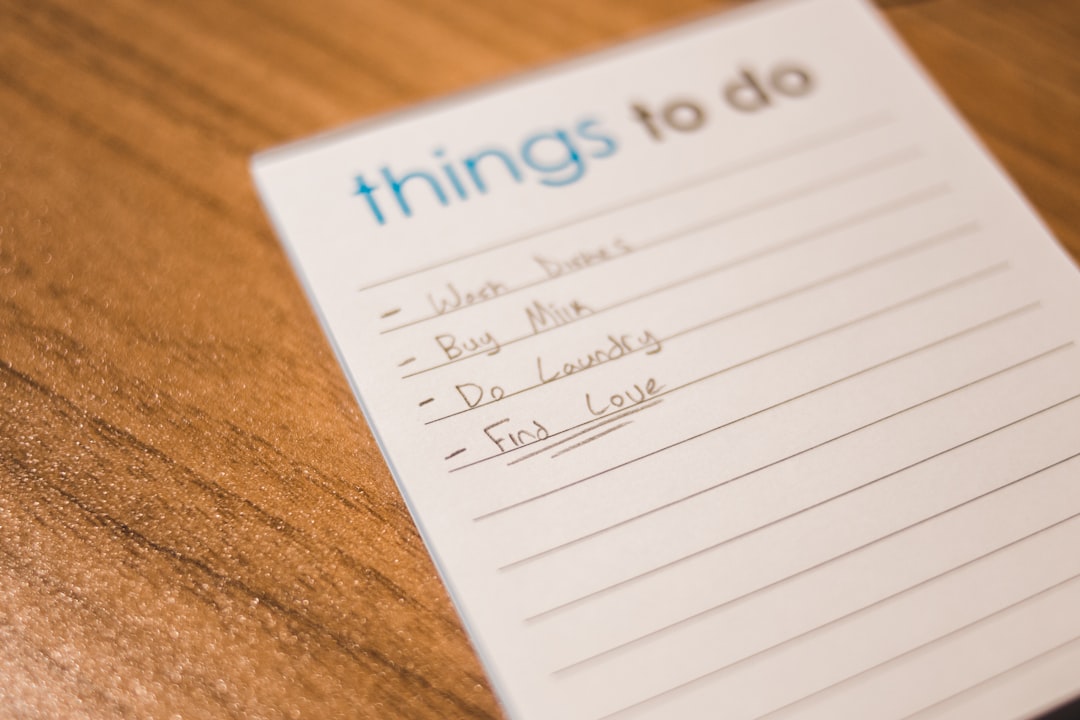 things to do
- Wash Dishes
- Buy Milk
- Do Laundry
- Find Love